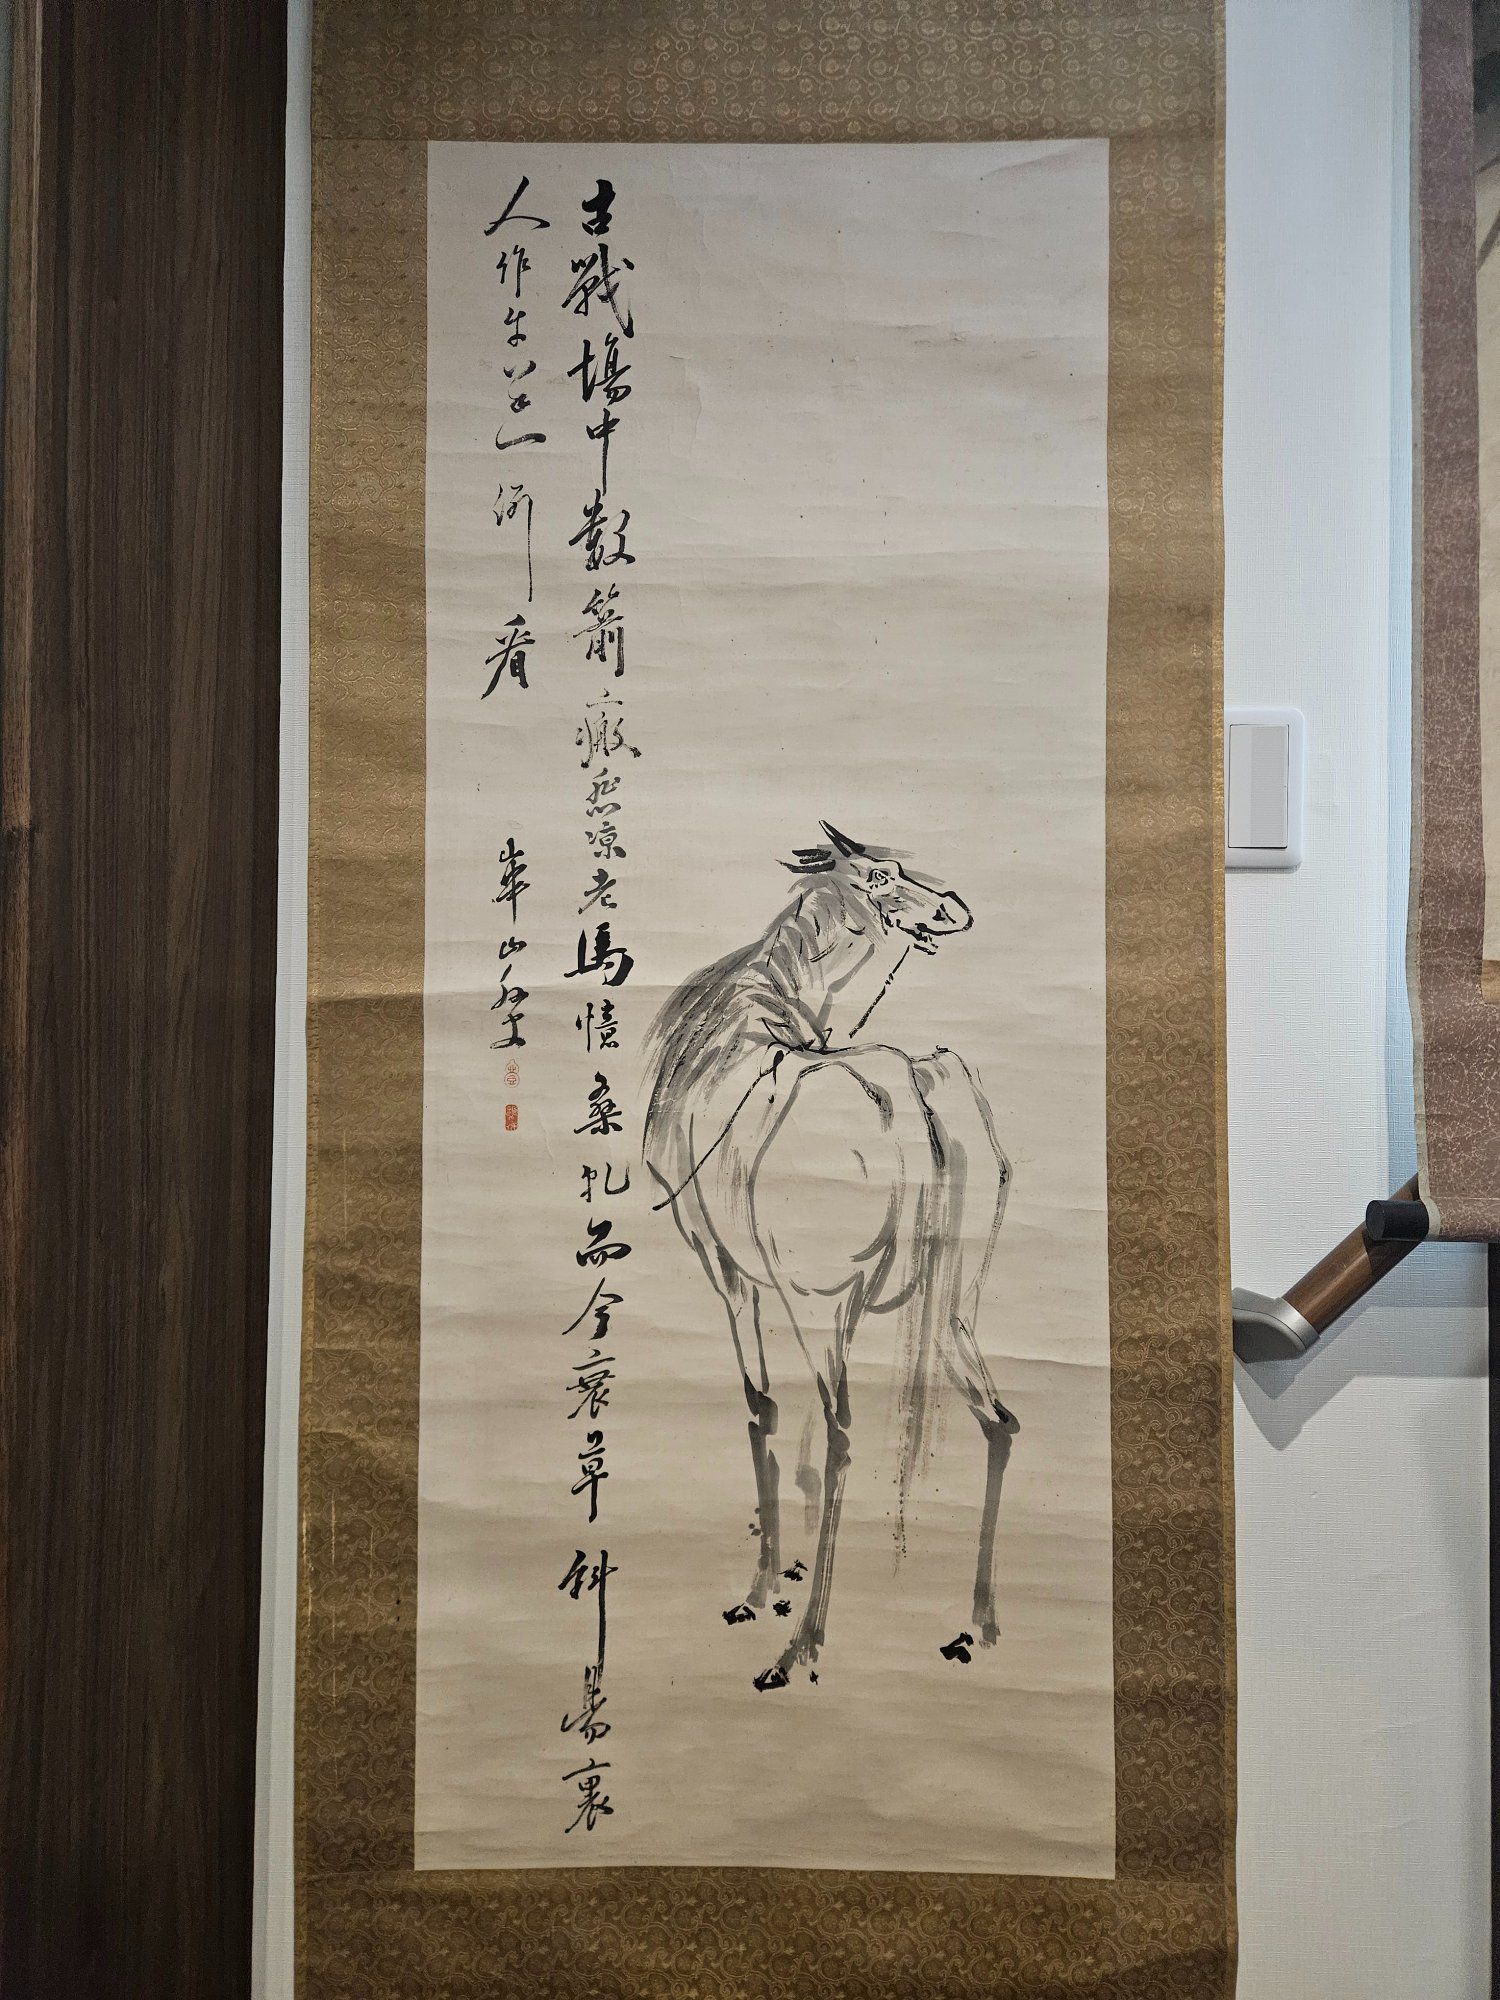 古戰場中數箭瘢悲凉老馬憶桑乾而今衰草斜陽裏
人作牛羊一例看
崋山外史